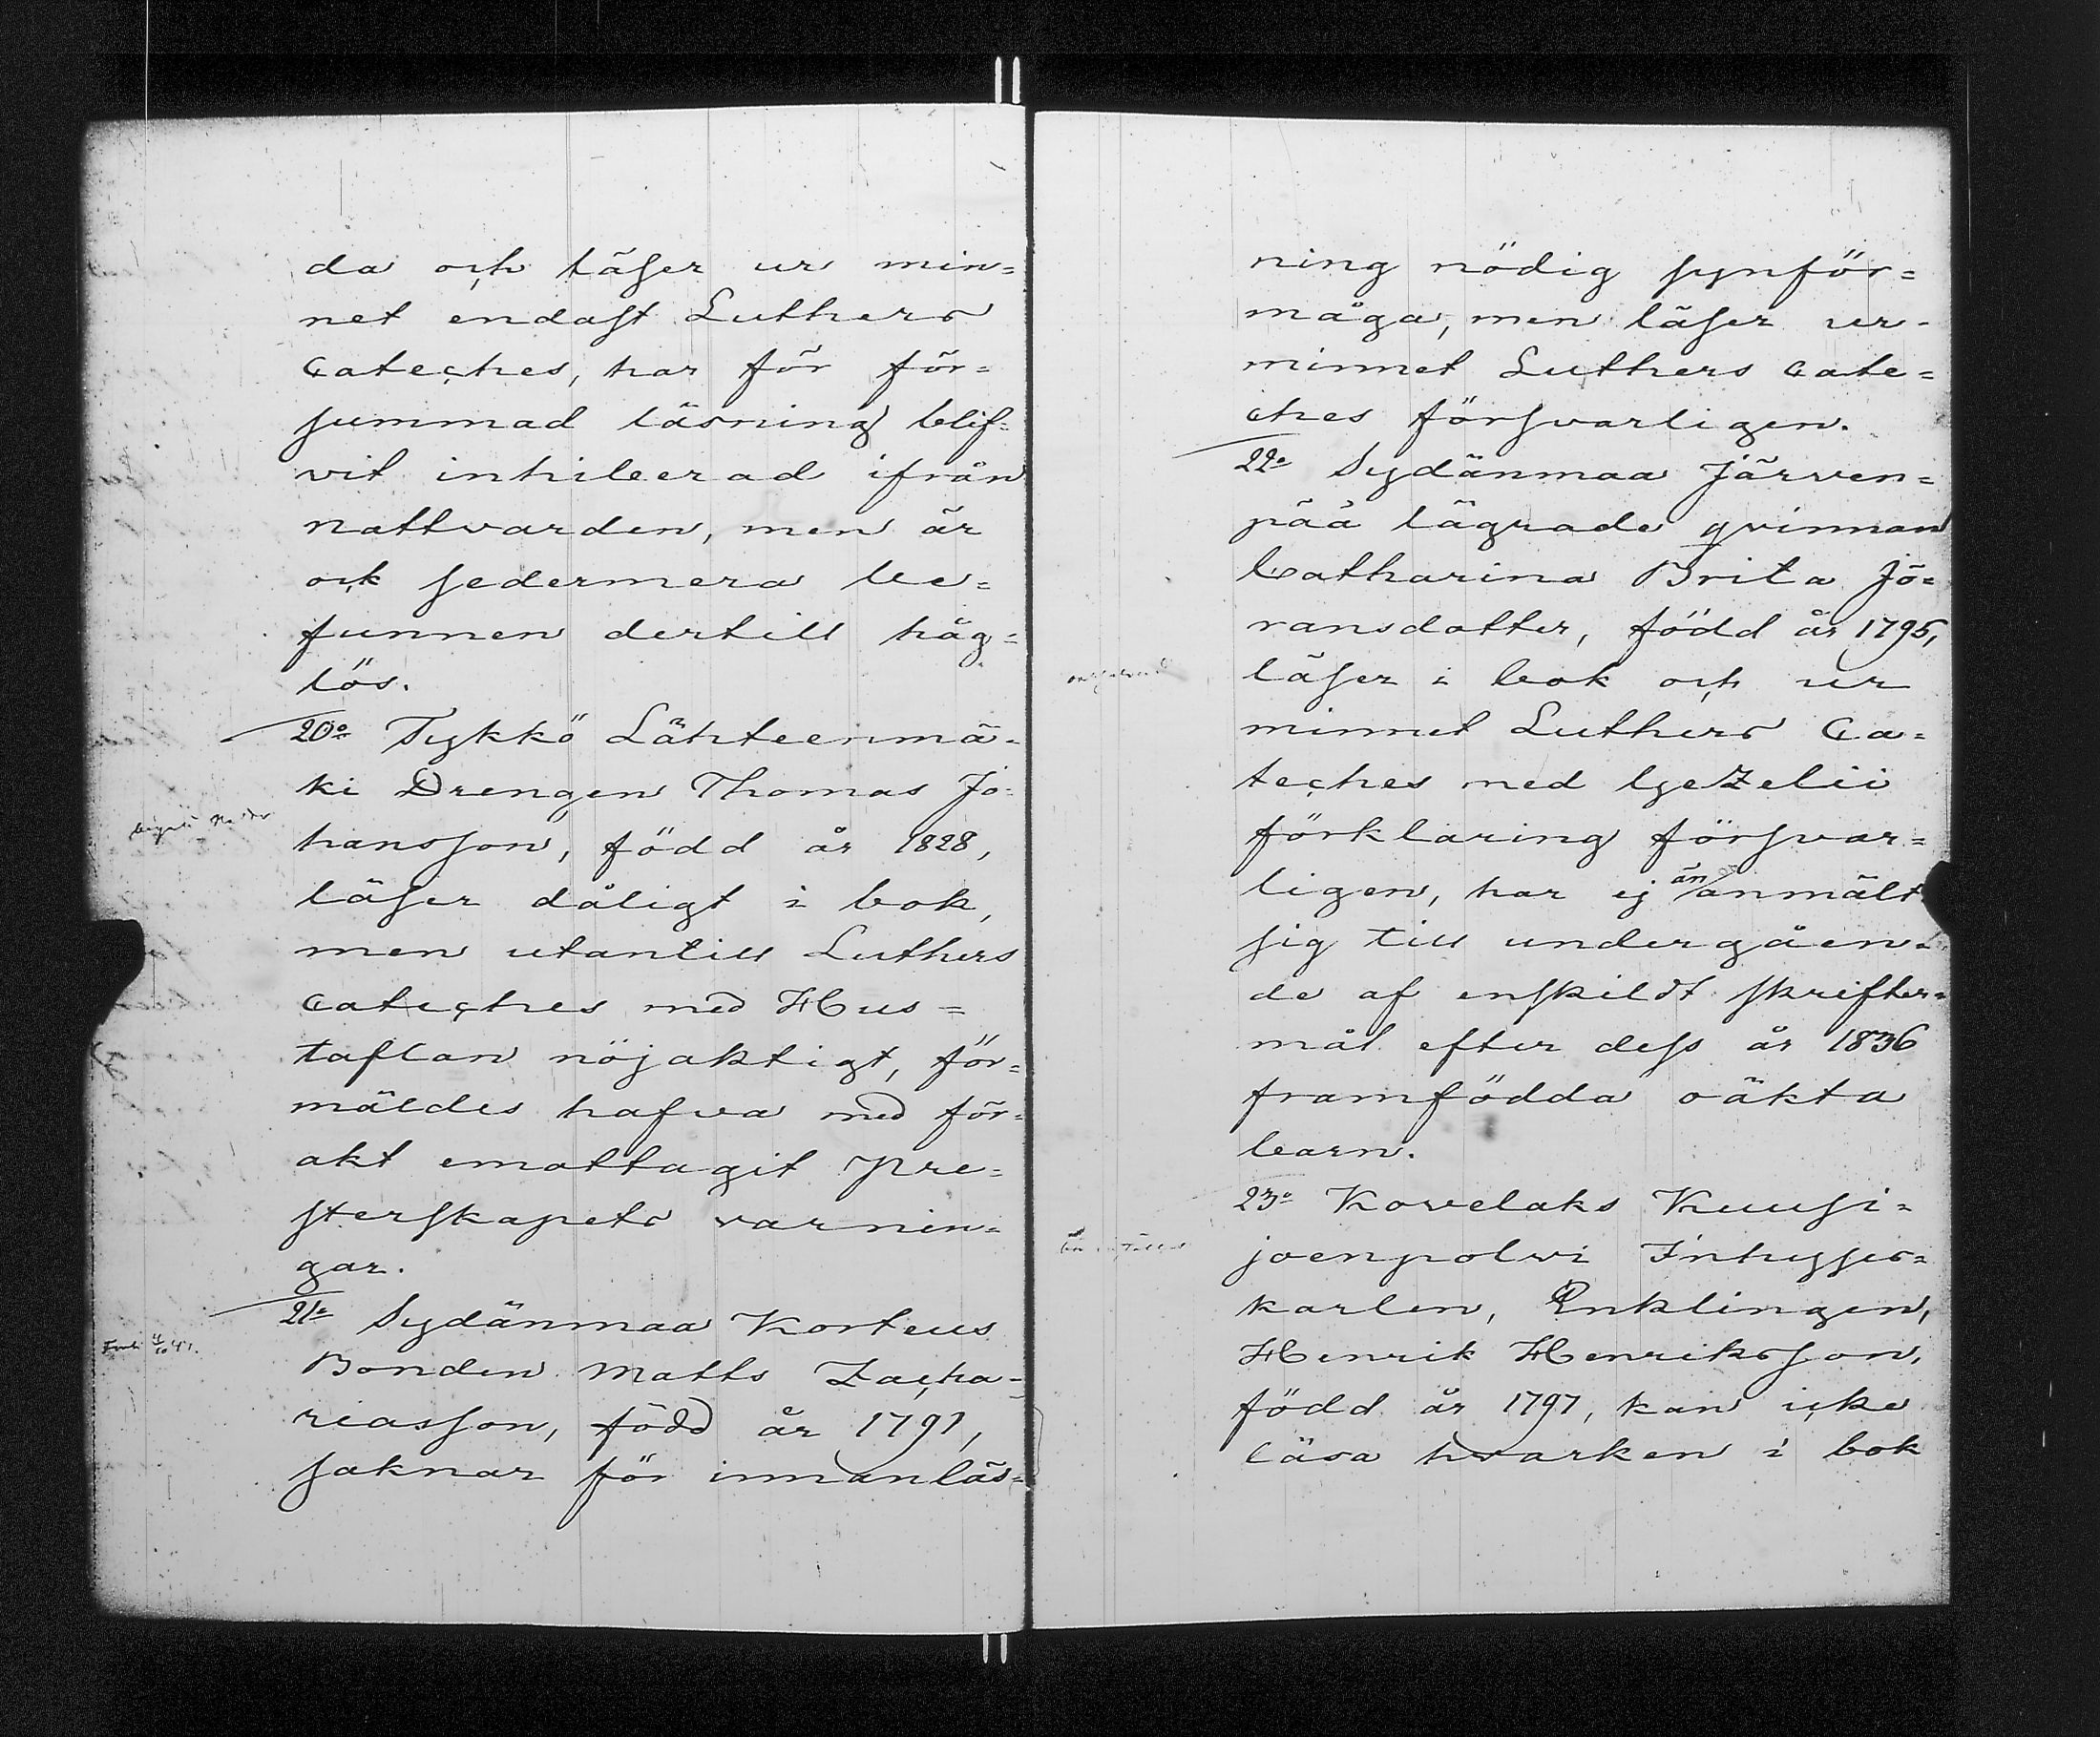 da och läser ur min=
net endast Luthers
Cateches, har för för=
summad läsning blif=
vit inhiberad ifrån
Nattvarden, men är
ock sedermera be=
funnen dertill håg=
lös.
20o Tykkö Lähteenmä=
ki Drengen Thomas Jo=
hansson, född år 1828,
läser dåligt i bok,
men utantill Luthers
Cateches med Hus=
taflan nöjaktigt, för=
mäldes hafva med för=
akt emottagit Pre=
sterskapets varnin=
gar.
21o Sydänmaa Korteus
Bonden Matts Zacha=
riasson, född år 1791,
saknar för innanläs=
ning nödig synför=
måga, men läser ur
minnet Luthers Cate=
ches försvarligen.
22o Sydänmaa Järven=
pää lägrade qvinnan
Catharina Brita Jö=
ransdotter, född år 1795,
läser i bok och ur
minnet Luthers Ca=
teches med Gezelii
förklaring försvar=
ligen, har ej än anmält
sig till undergåen=
de af enskildt skrifter=
mål efter dess år 1836
framfödda oäkta
barn.
23o Kovelaks Kuusi=
joenpolvi Inhyses=
karlen, Enklingen,
Henrik Henriksson,
född år 1797, kan icke
läsa hvarken i bok